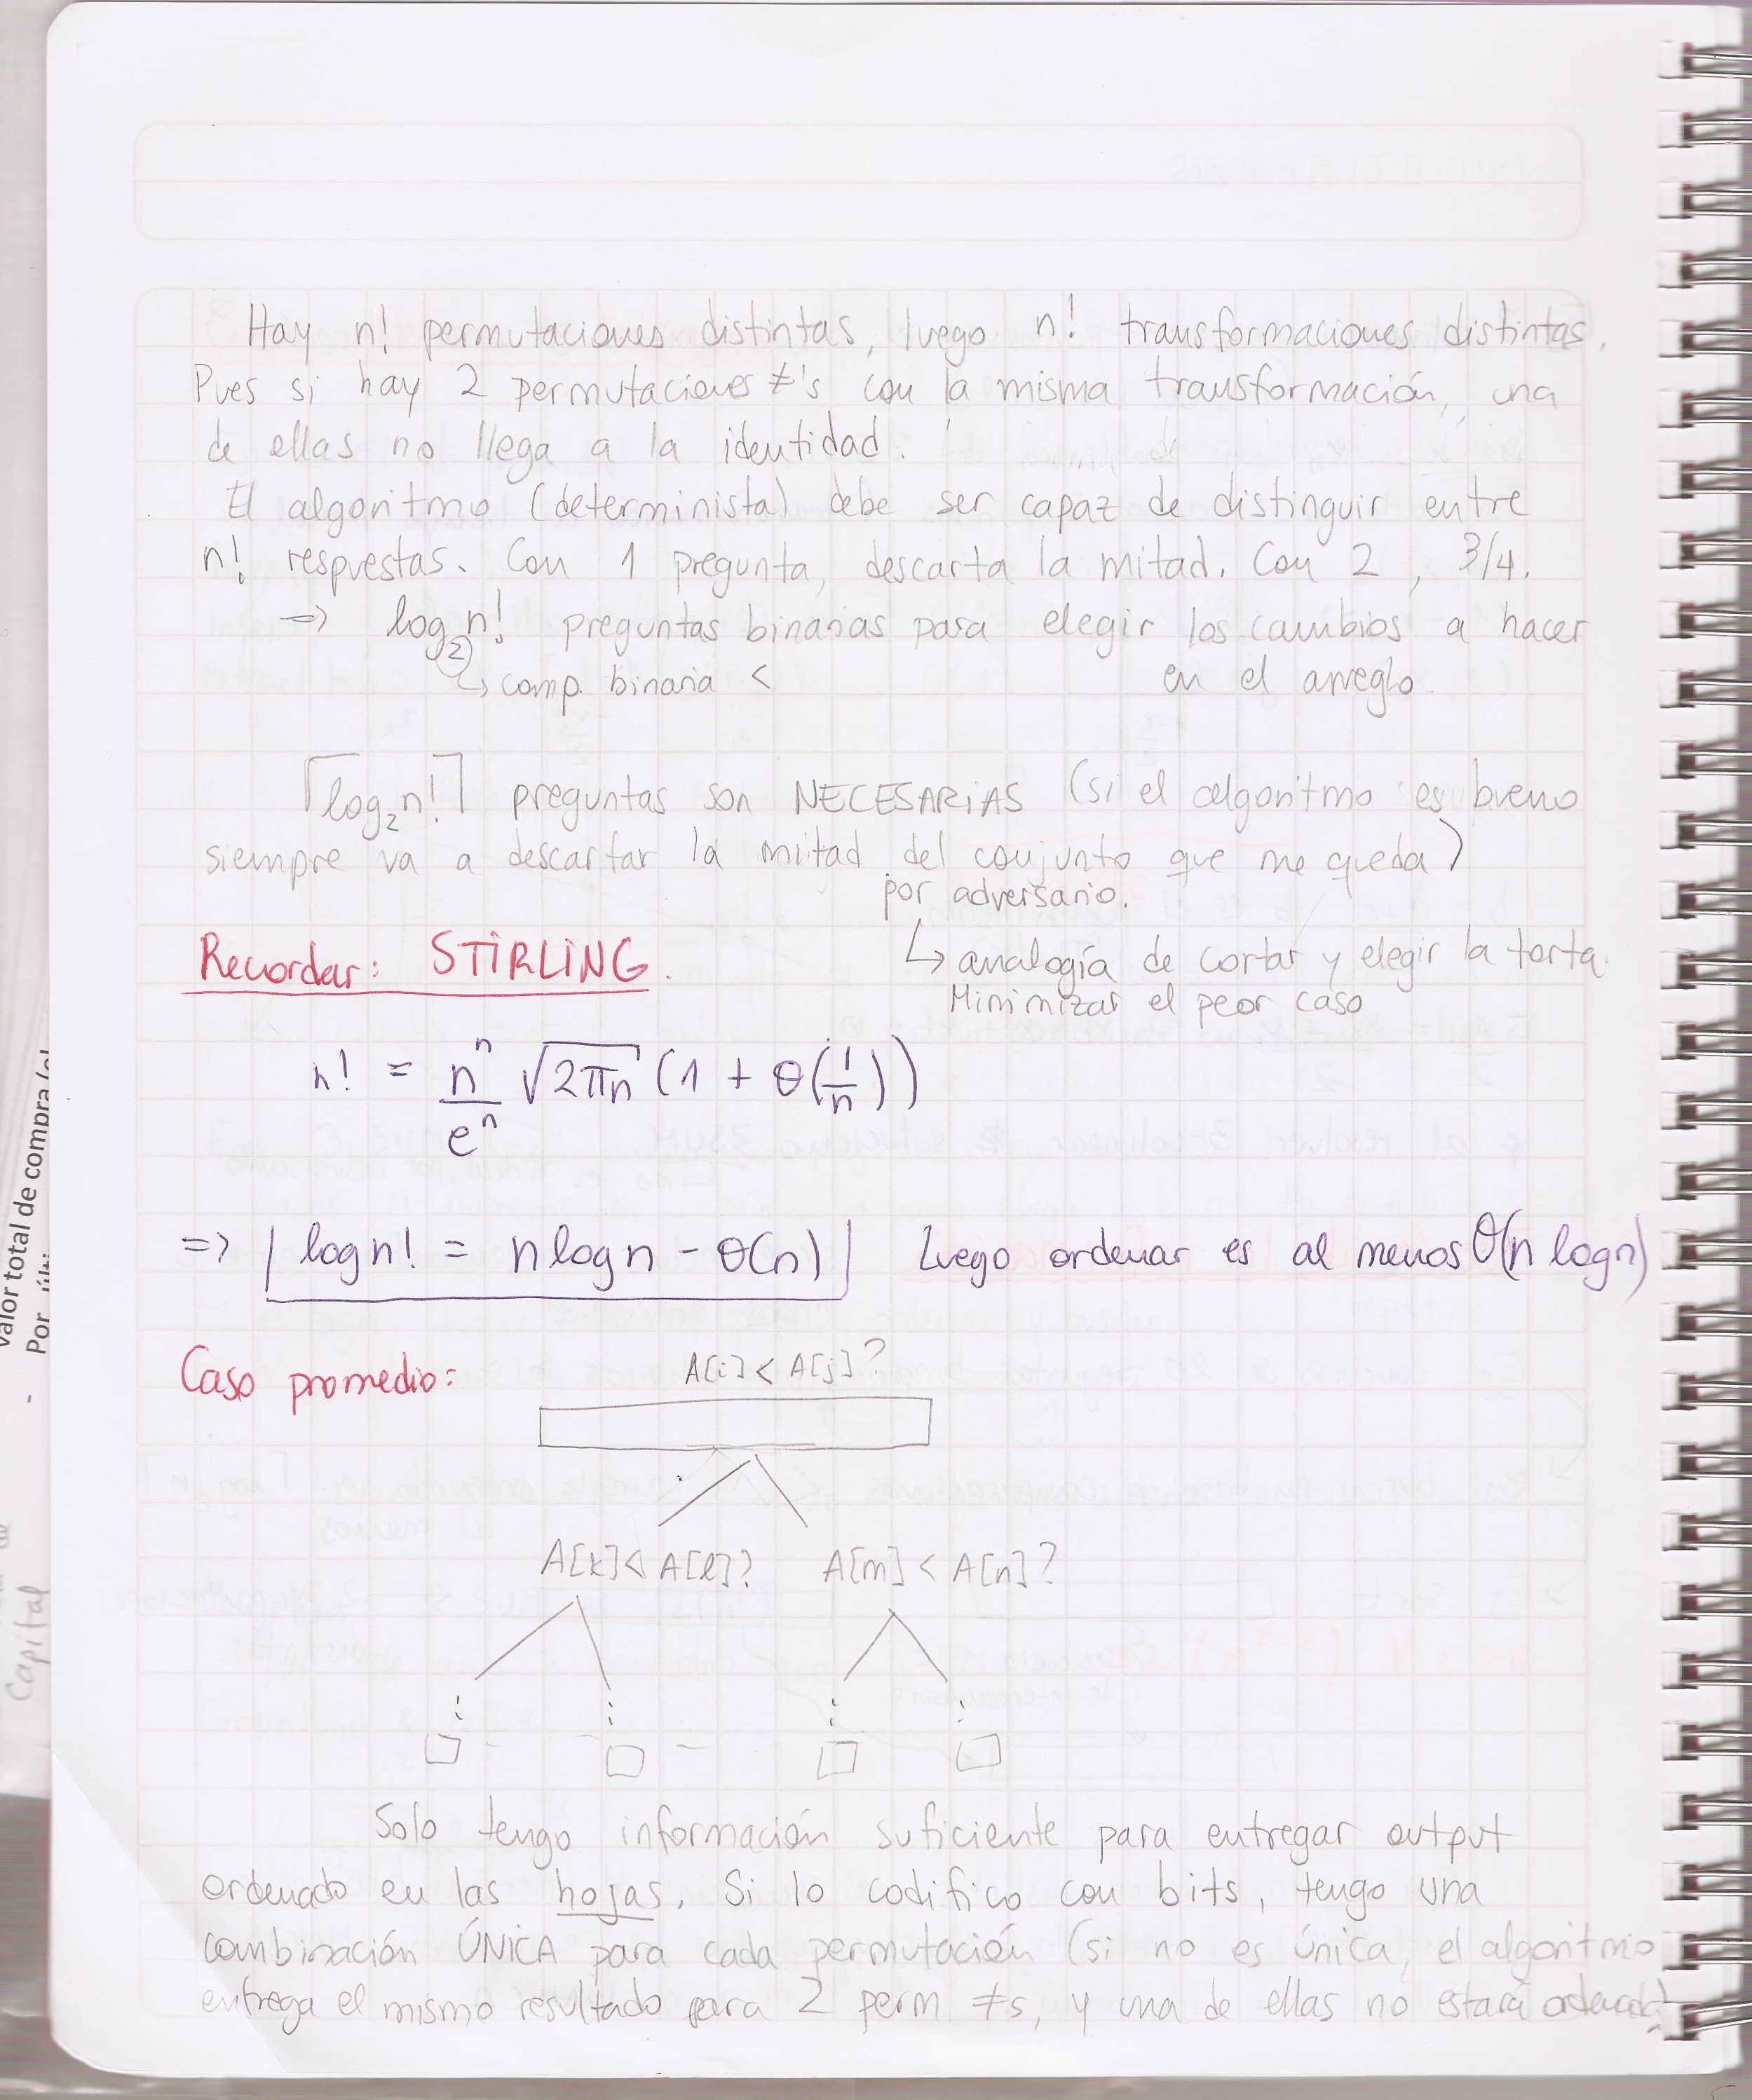 Hay n! permutaciones distintas, luego n! transformaciones distintas.
Pues si hay 2 permutaciones ≠'s con la misma transformación, una
de ellas no llega a la identidad.
El algoritmo (determinista) debe ser capaz de distinguir entre
n! respuestas. Con 1 pregunta, descarta la mitad. Con 2, 3/4.
=> log₂n! preguntas binarias para elegir los cambios a hacer
↳ comp. binaria < en el arreglo.
⌈log₂n!⌉ preguntas son NECESARIAS (si el algoritmo es bueno
siempre va a descartar la mitad del conjunto que me queda)
por adversario.
Recordar: STIRLING.
↳ analogía de cortar y elegir la torta.
Minimizar el peor caso
n! = nⁿ/eⁿ √2πn (1 + Θ(1/n))
=> | log n! = n log n - Θ(n) | Luego ordenar es al menos Θ(n log n)
Caso promedio:
A[i] < A[j]?
A[k] < A[l]? A[m] < A[n]?
Solo tengo información suficiente para entregar output
ordenado en las hojas. Si lo codifico con bits, tengo una
combinación ÚNICA para cada permutación (si no es única, el algoritmo
entrega el mismo resultado para 2 perm ≠s, y una de ellas no estará ordenada)
Valor total de compra
Por
Capital